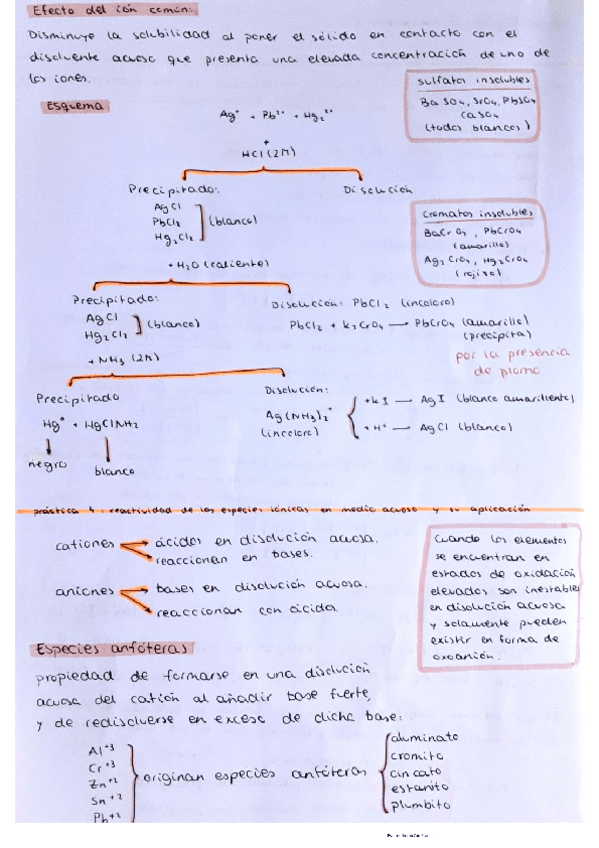 Efecto del ión común:
Disminuye la solubilidad al poner el sólido en contacto con el
disolvente acuoso que presenta una elevada concentración de uno de
los iones.
Esquema
Ag⁺ + Pb²⁺ + Hg₂²⁺
+
HCl (2M)
sulfatos insolubles
BaSO₄, SrO₄, PbSO₄
CaSO₄
(todos blancos)
Precipitado:
AgCl
PbCl₂
Hg₂Cl₂
(blanco)
Disolución
+ H₂O (caliente)
Cromatos insolubles
BaCrO₄, PbCrO₄
(amarillo)
Ag₂CrO₄, Hg₂CrO₄
(rojizo)
Precipitado:
AgCl
Hg₂Cl₂
(blanco)
+ NH₃ (2M)
Disolución: PbCl₂ (incoloro)
PbCl₂ + K₂CrO₄ → PbCrO₄ (amarillo)
(precipita)
por la presencia
de plomo
Precipitado
Hg⁰ + HgClNH₂
negro
blanco
Disolución:
Ag(NH₃)₂⁺
(incoloro)
+KI → AgI (blanco amarillento)
+H⁺ → AgCl (blanco)
práctica 4: reactividad de las especies iónicas en medio acuoso y su aplicación
cationes
ácidos en disolución acuosa.
reaccionan en bases.
aniones
bases en disolución acuosa.
reaccionan con ácidos.
Cuando los elementos
se encuentran en
estados de oxidación
elevados son inestables
en disolución acuosa
y solamente pueden
existir en forma de
oxoanión.
Especies anfóteras
propiedad de formarse en una disolución
acuosa del catión al añadir base fuerte,
y de redisolverse en exceso de dicha base:
Al⁺³
Cr⁺³
Zn⁺²
Sn⁺²
Pb⁺²
originan especies anfóteras
aluminato
cromito
cincato
estanito
plumbito